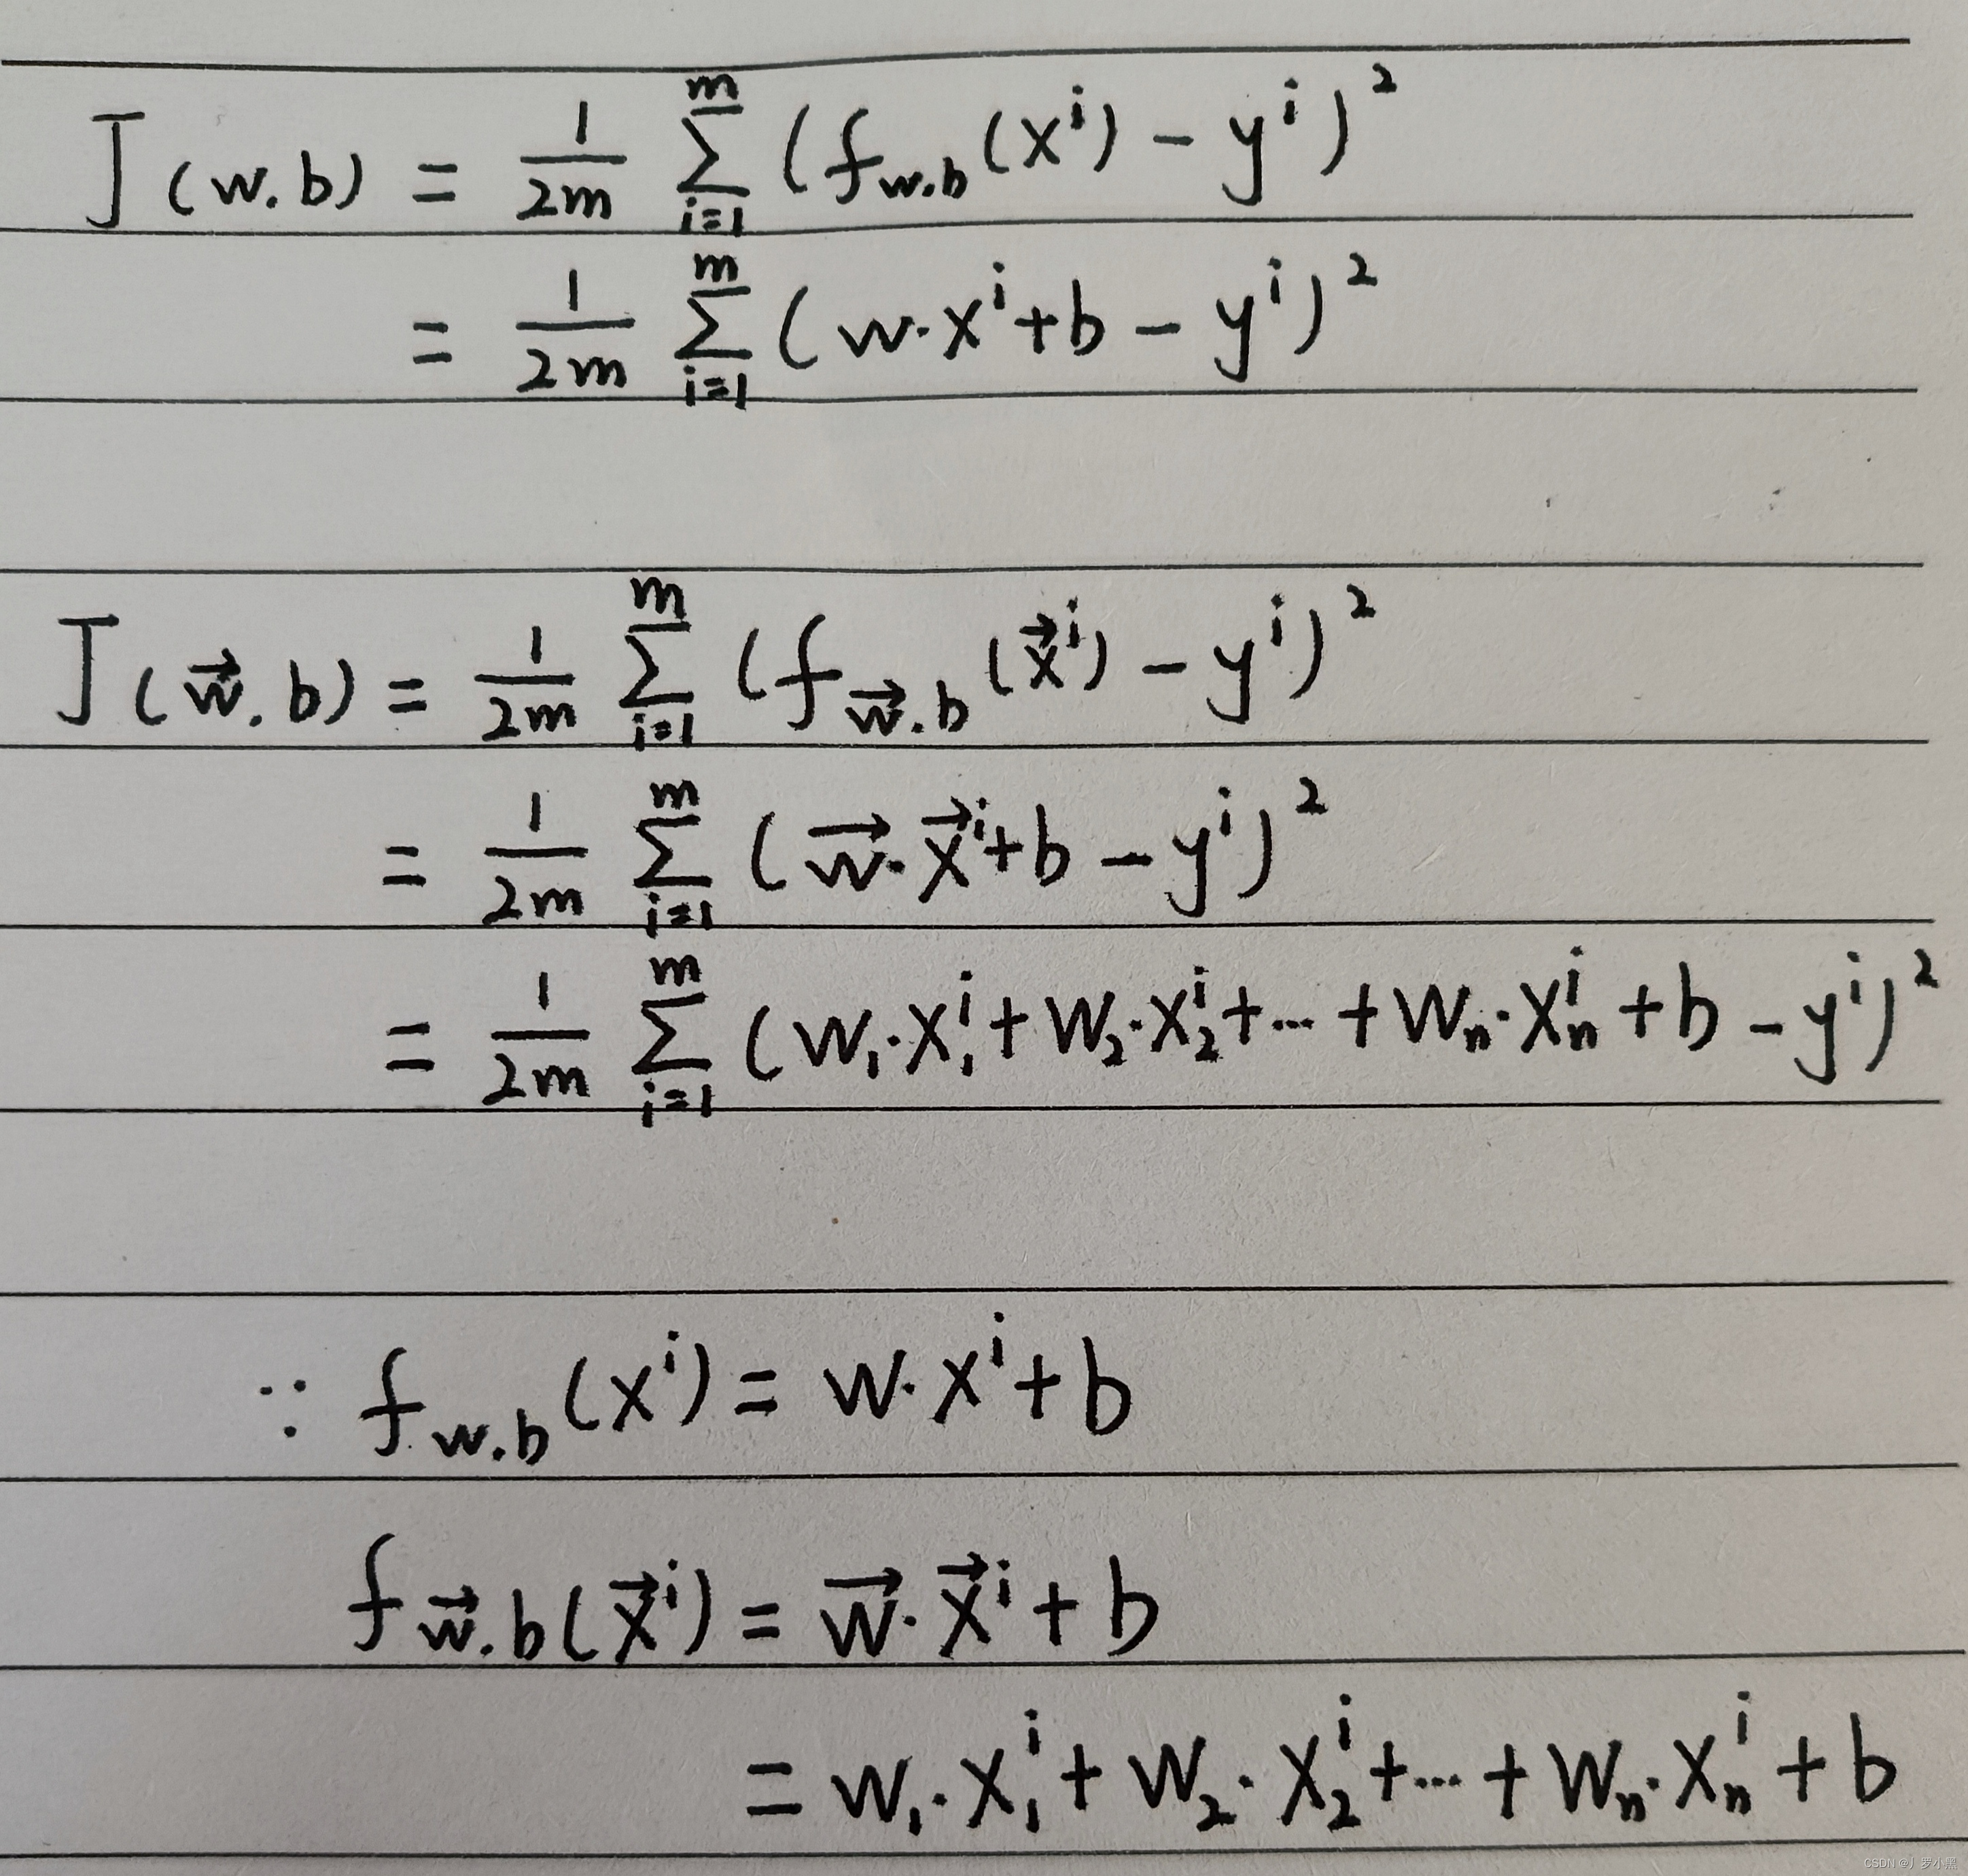 J(w.b) = \frac{1}{2m} \sum_{i=1}^{m} (f_{w.b}(x^i) - y^i)^2
= \frac{1}{2m} \sum_{i=1}^{m} (w·x^i + b - y^i)^2
J(\vec{w}.b) = \frac{1}{2m} \sum_{i=1}^{m} (f_{\vec{w}.b}(\vec{x}^i) - y^i)^2
= \frac{1}{2m} \sum_{i=1}^{m} (\vec{w}·\vec{x}^i + b - y^i)^2
= \frac{1}{2m} \sum_{i=1}^{m} (w_1·x_1^i + w_2·x_2^i + ... + w_n·x_n^i + b - y^i)^2
∵ f_{w.b}(x^i) = w·x^i + b
f_{\vec{w}.b}(\vec{x}^i) = \vec{w}·\vec{x}^i + b
= w_1·x_1^i + w_2·x_2^i + ... + w_n·x_n^i + b
CSDN @丿罗小黑